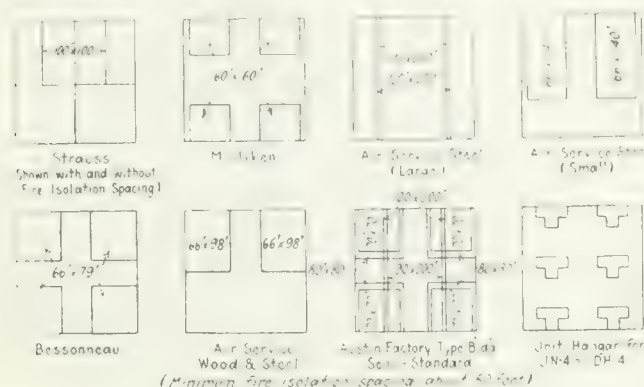 100'x100'
60'x60'
60' x 40'
Strauss
Shown with and without
Fire Isolation Spacing)
Milliken
Air Service Steel
(Large)
Air Service Steel
(Small)
100'x200'
66'x79'
66'x98'
66'x98'
80'x80'
80'x80'
Bessonneau
Air Service
Wood & Steel
Austin Factory Type Bldg
Semi-Standard
Unit Hangar for
JN-4 or DH-4
(Minimum fire isolation spacing about 50 feet)